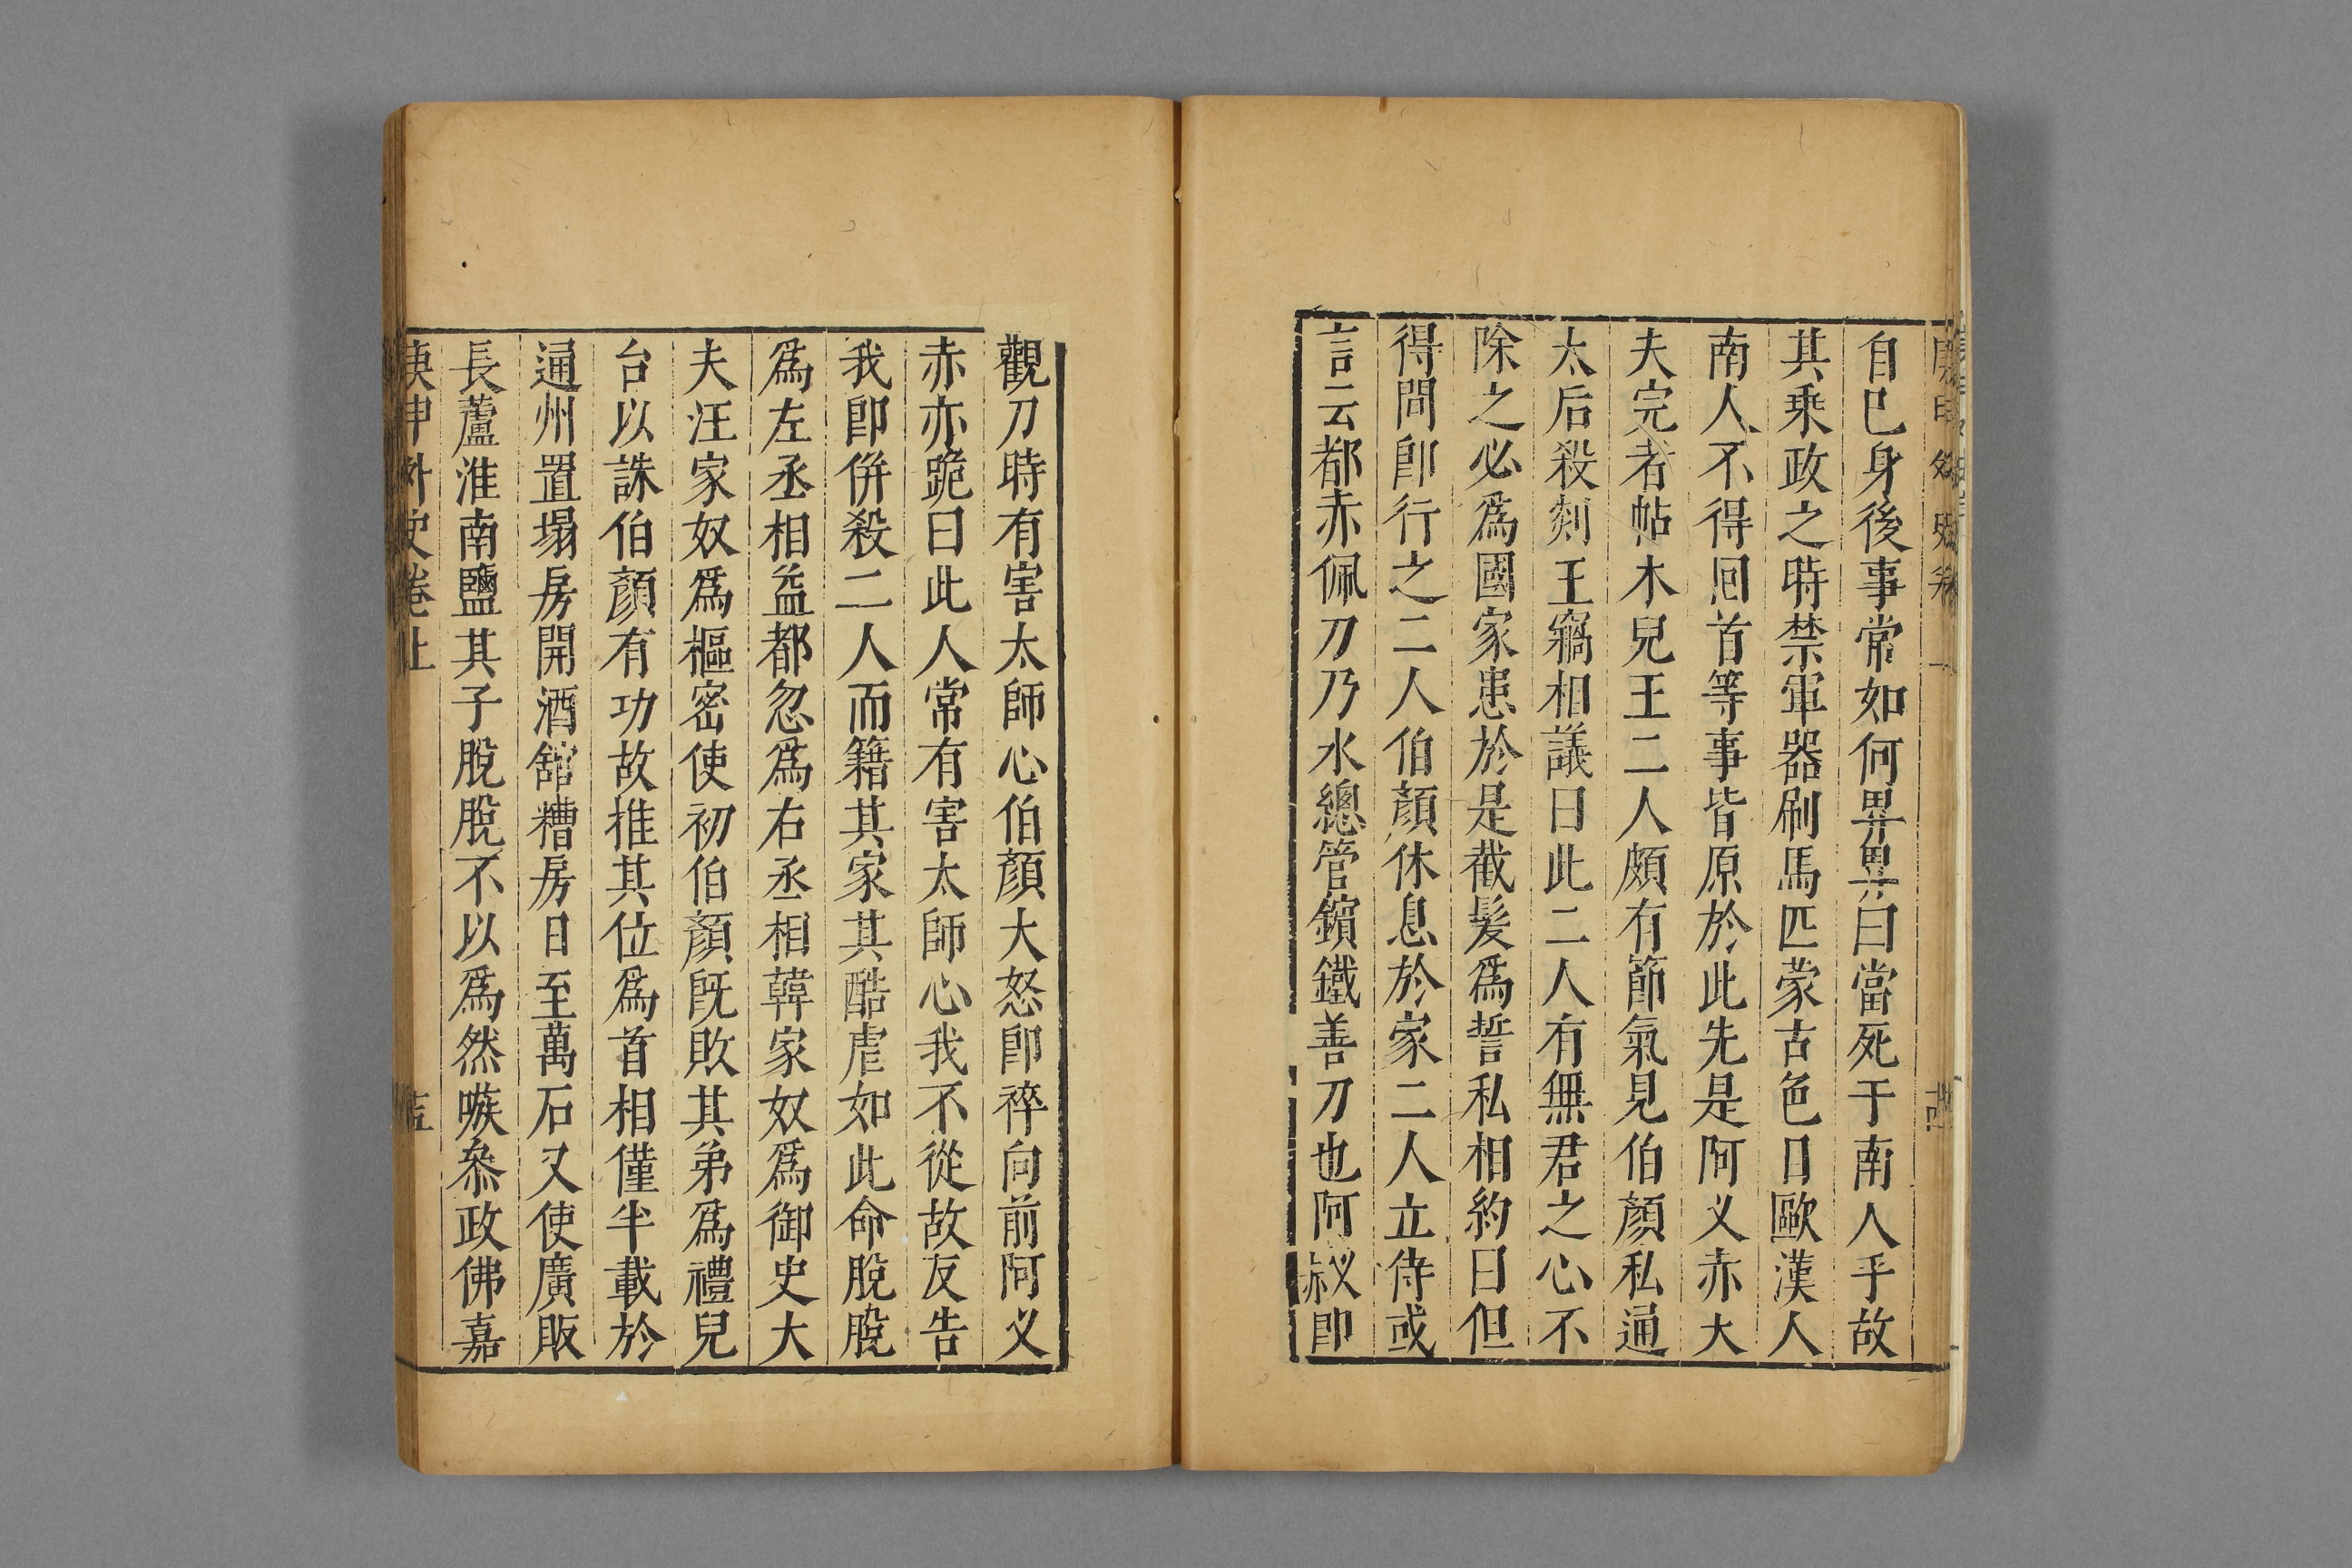 自已身後事常如何畀畀曰當死于南人乎故
其乘政之時禁軍器刷馬匹蒙古色目歐漢人
南人不得囘首等事皆原於此先是阿义赤大
夫完者帖木兒王二人頗有節氣見伯顏私通
太后殺剡王竊相議曰此二人有無君之心不
除之必爲國家患於是截髮爲誓私相約曰但
得間卽行之二人伯顏休息於家二人立侍或
言云都赤佩刀乃水總管鑌鐵善刀也阿义卽
觀刀時有害太師心伯顏大怒卽捽向前阿义
赤亦跪曰此人常有害太師心我不從故反告
我卽併殺二人而籍其家其酷虐如此命脫脫
爲左丞相益都忽爲右丞相韓家奴爲御史大
夫汪家奴爲樞密使初伯顏旣敗其弟爲禮兒
台以誅伯顏有功故推其位爲首相僅半載於
通州置塌房開酒舘糟房日至萬石又使廣販
長蘆淮南鹽其子脫脫不以爲然嗾叅政佛嘉
庚申外史卷上